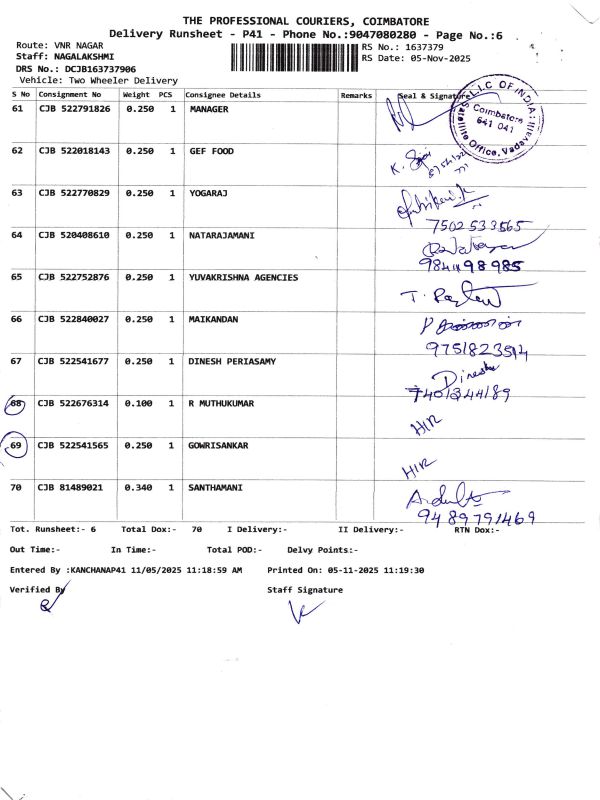 THE PROFESSIONAL COURIERS, COIMBATORE
Delivery Runsheet - P41 - Phone No.:9047080280 - Page No.:6
Route: VNR NAGAR
RS No.: 1637379
Staff: NAGALAKSHMI
RS Date: 05-Nov-2025
DRS No.: DCJB163737906
Vehicle: Two Wheeler Delivery
S No Consignment No Weight PCS Consignee Details Remarks Seal & Signature
61 CJB 522791826 0.250 1 MANAGER
L.I.C OF INDIA
Coimbatore
641 041
Satellite Office, Vadavalli
62 CJB 522018143 0.250 1 GEF FOOD
63 CJB 522770829 0.250 1 YOGARAJ
7502533565
64 CJB 520408610 0.250 1 NATARAJAMANI
65 CJB 522752876 0.250 1 YUVAKRISHNA AGENCIES
66 CJB 522840027 0.250 1 MAIKANDAN
9751823514
67 CJB 522541677 0.250 1 DINESH PERIASAMY
Dinesh
68 CJB 522676314 0.100 1 R MUTHUKUMAR
HIR
69 CJB 522541565 0.250 1 GOWRISANKAR
HIR
70 CJB 81489021 0.340 1 SANTHAMANI
9489791469
Tot. Runsheet:- 6 Total Dox:- 70 I Delivery:- II Delivery:- RTN Dox:-
Out Time:- In Time:- Total POD:- Delvy Points:-
Entered By :KANCHANAP41 11/05/2025 11:18:59 AM Printed On: 05-11-2025 11:19:30
Verified By Staff Signature